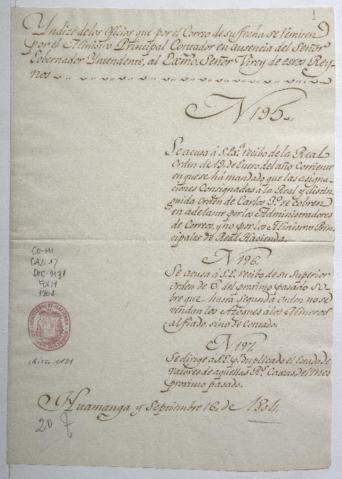 Yndize delos Oficios que por el Correo de su fecha se remiten
por el Ministro Principal Contador en ausencia del Señor
Governador Yntendente, al Exmo. Señor Virey de estos Rey-
nos
N 195.
Se acusa á S.Exa. recibo de la Real
Orden de 13 de Enero del año Corriente
en que se há mandado que las asigna-
ciones Consignadas á la Real y distin-
guida Orden de Carlos 3º. se cobren
en adelante por los Administradores
de Correos, y no por los Ministros Prin-
cipales de Real Hacienda.
N 196.
Se acusa á S.E. recibo de su Superior
Orden de 6. del proximo pasado so-
bre que hasta segunda orden no se
vendan los Azogues alos Mineros
al fiado, sino de Contado.
N 197.
Se dirige á S.E. por duplicado el Estado de
valores de aquellas Rs. Caxas del mes
proximo pasado.
Huamanga y Septiembre 16 de 1804.
20